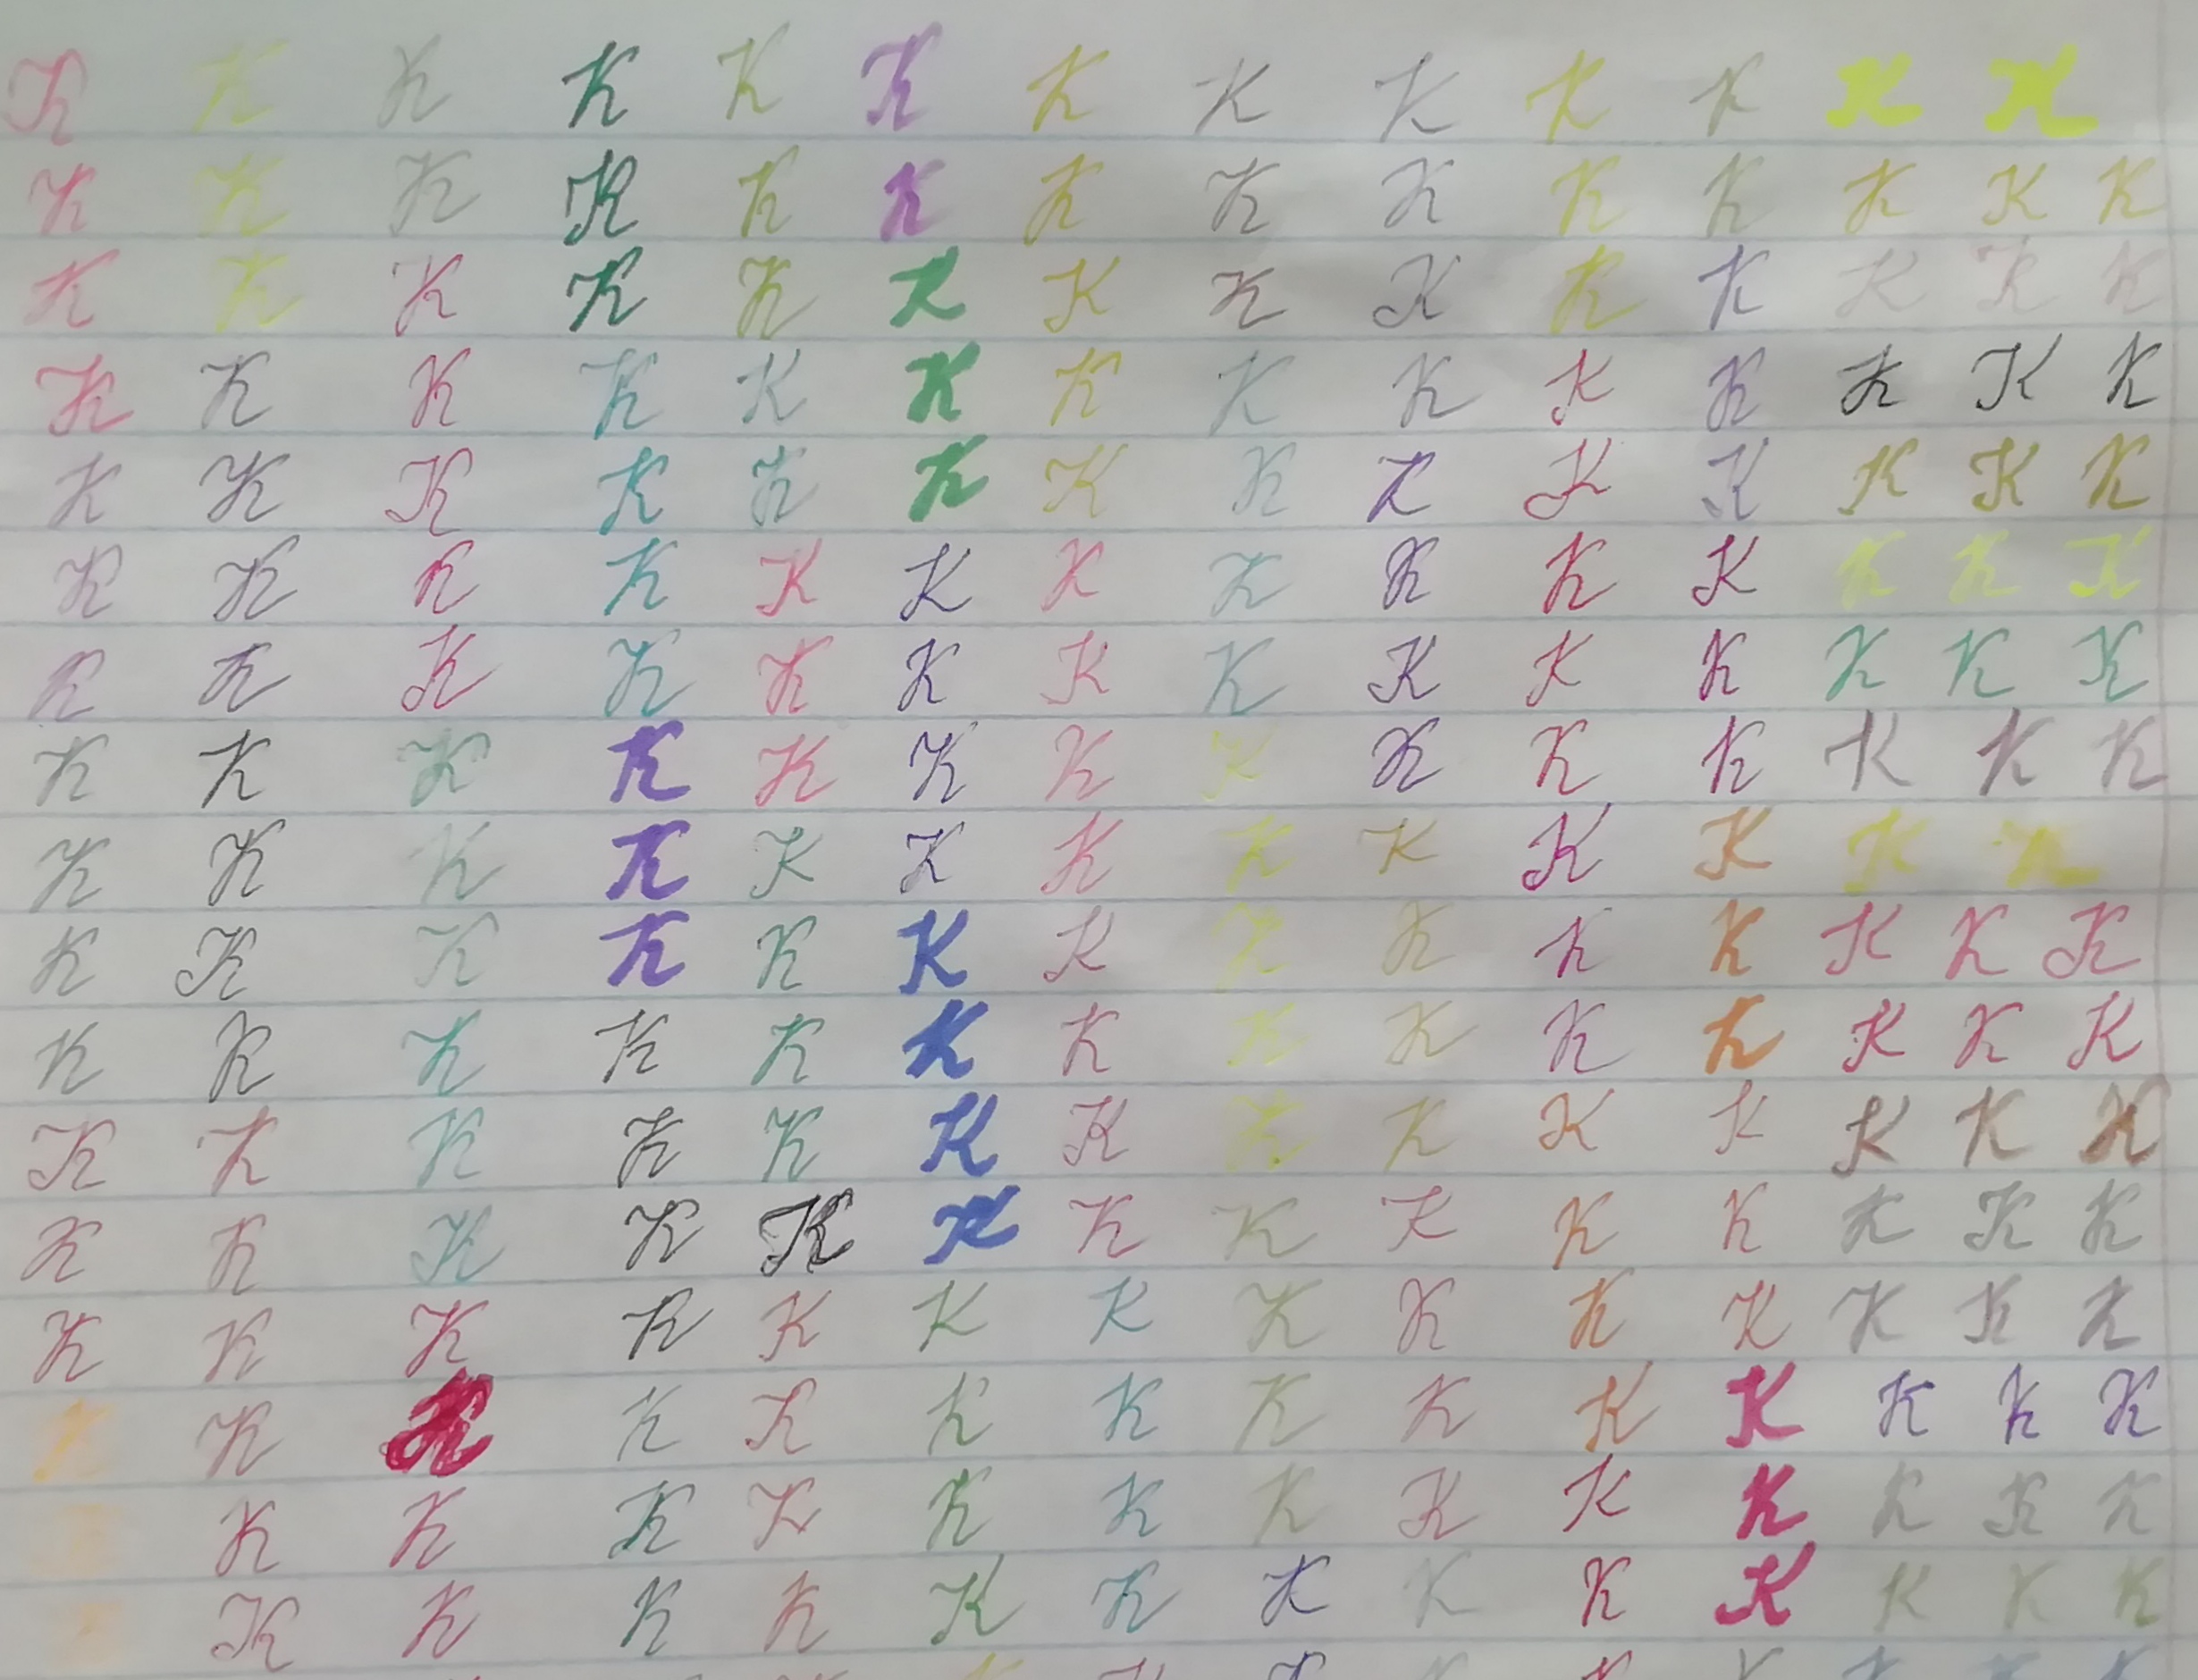 K K K K K K K K K K K K K
K K K K K K K K K K K K K K
K K K K K K K K K K K K K K
K K K K K K K K K K K K K K
K K K K K K K K K K K K K K
K K K K K K K K K K K K K K
K K K K K K K K K K K K K K
K K K K K K K K K K K K K K
K K K K K K K K K K K K K
K K K K K K K K K K K K K K
K K K K K K K K K K K K K K
K K K K K K K K K K K K K K
K K K K K K K K K K K K K K
K K K K K K K K K K K K K K
K K K K K K K K K K K K K K
K K K K K K K K K K K K K K
K K K K K K K K K K K K K K